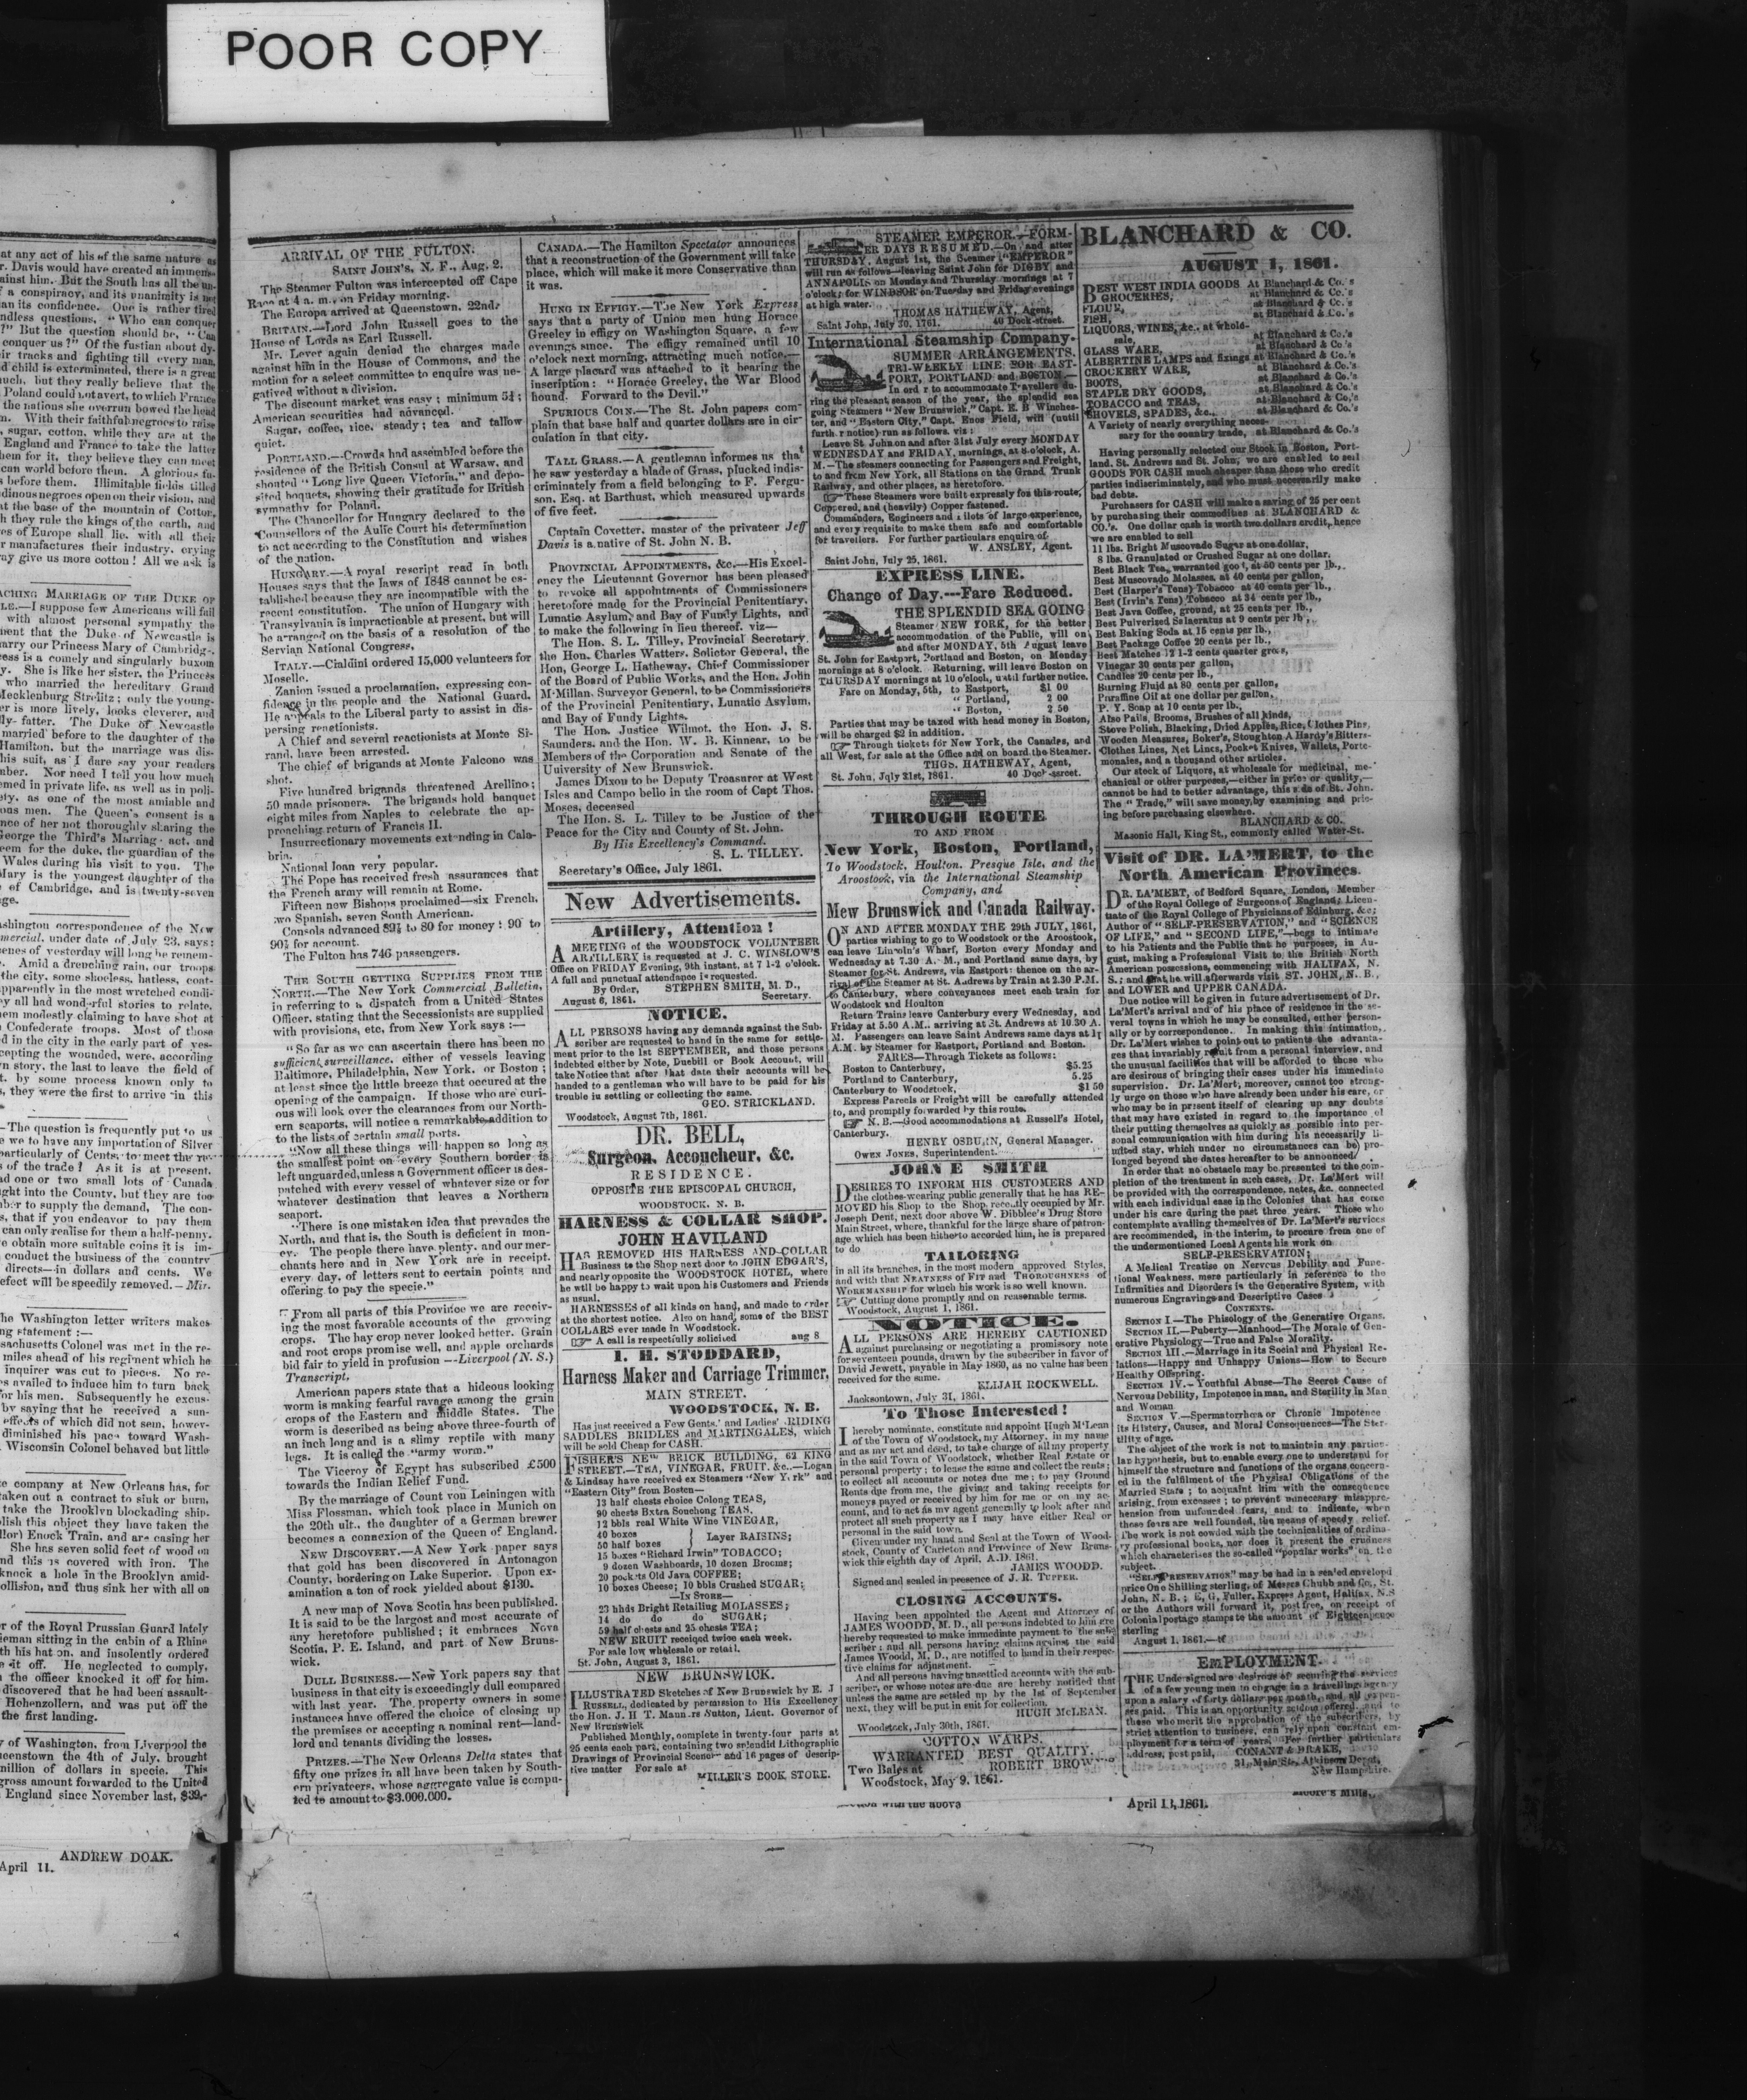 POOR COPY
at any act of his of the same nature as
r. Davis would have created an immens-
ainst him. But the South has all the un-
f a conspiracy, and its unanimity is not
an its confidence. One is rather tired
ndless questions. "Who can conquer
?" But the question should be, "Can
conquer us?" Of the fustian about dy-
ir tracks and fighting till every man,
d child is exterminated, there is a great
uch, but they really believe that the
Poland could not avert, to which France
the nations she overrun bowed the head
n. With their faithful negroes to raise
, sugar, cotton, while they are at the
England and France to take the latter
hem for it, they believe they can meet
can world before them. A glorious fu-
s before them. Illimitable fields tilled
dinous negroes open on their vision, and
at the base of the mountain of Cotton,
h they rule the kings of the earth, and
es of Europe shall lie, with all their
r manufactures their industry, crying
ay give us more cotton! All we ask is
ACHING MARRIAGE OF THE DUKE OF
LE.—I suppose few Americans will fail
with almost personal sympathy the
nent that the Duke of Newcastle is
arry our Princess Mary of Cambridg-.
ess is a comely and singularly buxom
y. She is like her sister, the Princess
who married the hereditary Grand
Mecklenburg Strelitz; only the young-
er is more lively, looks cleverer, and
lly fatter. The Duke of Newcastle
married before to the daughter of the
Hamilton, but the marriage was dis-
his suit, as I dare say your readers
mber. Nor need I tell you how much
emed in private life, as well as in poli-
ety, as one of the most amiable and
ous men. The Queen's consent is a
nce of her not thoroughly sharing the
George the Third's Marriage act, and
eem for the duke, the guardian of the
Wales during his visit to you. The
Mary is the youngest daughter of the
of Cambridge, and is twenty-seven
ge.
ashington correspondence of the New
mercial, under date of July 23, says:
enes of yesterday will long be remem-
Amid a drenching rain, our troops
the city, some shoeless, hatless, coat-
pparently in the most wretched condi-
ey all had wonderful stories to relate,
em modestly claiming to have shot at
Confederate troops. Most of those
d in the city in the early part of yes-
cepting the wounded, were, according
n story, the last to leave the field of
t, by some process known only to
s, they were the first to arrive in this
—The question is frequently put to us
e we to have any importation of Silver
particularly of Cents, to meet the re-
s of the trade? As it is at present,
ad one or two small lots of Canada
ght into the County, but they are too
ber to supply the demand, The con-
s, that if you endeavor to pay them
can only realise for them a half-penny.
o obtain more suitable coins it is im-
conduct the business of the country
directs—in dollars and cents. We
efect will be speedily removed.—Mir.
he Washington letter writers makes
ng statement:—
sachusetts Colonel was met in the re-
miles ahead of his regiment which he
inquirer was cut to pieces. No re-
s availed to induce him to turn back
or his men. Subsequently he excus-
by saying that he received a sun-
effects of which did not sem, howev-
diminished his pace toward Wash-
Wisconsin Colonel behaved but little
e company at New Orleans has, for
aken out a contract to sink or burn,
take the Brooklyn blockading ship.
lish this object they have taken the
llor) Enock Train, and are casing her
She has seven solid feet of wood on
nd this is covered with iron. The
knock a hole in the Brooklyn amid-
ollision, and thus sink her with all on
r of the Royal Prussian Guard lately
ieman sitting in the cabin of a Rhine
th his hat on, and insolently ordered
e it off. He neglected to comply,
the officer knocked it off for him.
discovered that he had been assault-
Hohenzollern, and was put off the
the first landing.
y of Washington, from Liverpool the
ueenstown the 4th of July, brought
million of dollars in specie. This
gross amount forwarded to the United
England since November last, $39,-
ANDREW DOAK.
April 11.
ARRIVAL OF THE FULTON.
SAINT JOHN'S, N. F., Aug. 2.
The Steamer Fulton was intercepted off Cape
Race at 4 a. m., on Friday morning.
The Europa arrived at Queenstown, 22nd.
BRITAIN.—Lord John Russell goes to the
House of Lords as Earl Russell.
Mr. Lever again denied the charges made
against him in the House of Commons, and the
motion for a select committee to enquire was ne-
gatived without a division.
The discount market was easy; minimum 5¼;
American securities had advanced.
Sugar, coffee, rice, steady; tea and tallow
quiet.
PORTLAND.—Crowds had assembled before the
residence of the British Consul at Warsaw, and
shouted "Long live Queen Victoria," and depo-
sited boquets, showing their gratitude for British
sympathy for Poland.
The Chancellor for Hungary declared to the
Counsellors of the Aulic Court his determination
to act according to the Constitution and wishes
of the nation.
HUNGARY.—A royal rescript read in both
Houses says that the laws of 1848 cannot be es-
tablished because they are incompatible with the
recent constitution. The union of Hungary with
Transylvania is impracticable at present, but will
be arranged on the basis of a resolution of the
Servian National Congress,
ITALY.—Cialdini ordered 15,000 volunteers for
Moselle.
Zanion issued a proclamation, expressing con-
fidence in the people and the National Guard.
He appeals to the Liberal party to assist in dis-
persing reactionists.
A Chief and several reactionists at Monte Si-
rand, have been arrested.
The chief of brigands at Monte Falcono was
shot.
Five hundred brigands threatened Arellino;
50 made prisoners. The brigands hold banquet
eight miles from Naples to celebrate the ap-
proaching return of Francis II.
Insurrectionary movements extending in Cala-
bria.
National loan very popular.
The Pope has received fresh assurances that
the French army will remain at Rome.
Fifteen now Bishops proclaimed—six French,
two Spanish, seven South American.
Consols advanced 89½ to 80 for money; 90 to
90½ for account.
The Fulton has 746 passengers.
THE SOUTH GETTING SUPPLIES FROM THE
NORTH.—The New York Commercial Bulletin,
in referring to a dispatch from a United States
Officer, stating that the Secessionists are supplied
with provisions, etc, from New York says:—
"So far as we can ascertain there has been no
sufficient surveillance, either of vessels leaving
Baltimore, Philadelphia, New York, or Boston;
at least since the little breeze that occured at the
opening of the campaign. If those who are curi-
ous will look over the clearances from our North-
ern seaports, will notice a remarkable addition to
to the lists of certain small ports.
"Now all these things will happen so long as
the smallest point on every Southern border is
left unguarded, unless a Government officer is des-
patched with every vessel of whatever size or for
whatever destination that leaves a Northern
seaport.
"There is one mistaken idea that prevades the
North, and that is, the South is deficient in mon-
ey. The people there have plenty, and our mer-
chants here and in New York are in receipt,
every day, of letters sent to certain points and
offering to pay the specie."
From all parts of this Province we are receiv-
ing the most favorable accounts of the growing
crops. The hay crop never looked better. Grain
and root crops promise well, and apple orchards
bid fair to yield in profusion --Liverpool (N. S.)
Transcript.
American papers state that a hideous looking
worm is making fearful ravage among the grain
crops of the Eastern and Middle States. The
worm is described as being above three-fourth of
an inch long and is a slimy reptile with many
legs. It is called the "army worm."
The Viceroy of Egypt has subscribed £500
towards the Indian Relief Fund.
By the marriage of Count von Leiningen with
Miss Flossman, which took place in Munich on
the 20th ult., the daughter of a German brewer
becomes a connexion of the Queen of England.
NEW DISCOVERY.—A New York paper says
that gold has been discovered in Antonagon
County, bordering on Lake Superior. Upon ex-
amination a ton of rock yielded about $130.
A new map of Nova Scotia has been published.
It is said to be the largest and most accurate of
any heretofore published; it embraces Nova
Scotia, P. E. Island, and part of New Bruns-
wick.
DULL BUSINESS.—New York papers say that
business in that city is exceedingly dull compared
with last year. The property owners in some
instances have offered the choice of closing up
the premises or accepting a nominal rent—land-
lord and tenants dividing the losses.
PRIZES.—The New Orleans Delta states that
fifty one prizes in all have been taken by South-
ern privateers, whose aggregate value is compu-
ted to amount to $3.000.000.
CANADA.—The Hamilton Spectator announces
that a reconstruction of the Government will take
place, which will make it more Conservative than
it was.
HUNG IN EFFIGY.—The New York Express
says that a party of Union men hung Horace
Greeley in effigy on Washington Square, a few
evenings since. The effigy remained until 10
o'clock next morning, attracting much notice.—
A large placard was attached to it bearing the
inscription: "Horace Greeley, the War Blood
hound. Forward to the Devil."
SPURIOUS COIN.—The St. John papers com-
plain that base half and quarter dollars are in cir-
culation in that city.
TALL GRASS.—A gentleman informs us that
he saw yesterday a blade of Grass, plucked indis-
criminately from a field belonging to F. Fergu-
son, Esq. at Barthust, which measured upwards
of five feet.
Captain Coxetter, master of the privateer Jeff
Davis is a native of St. John N. B.
PROVINCIAL APPOINTMENTS, &c.—His Excel-
ency the Lieutenant Governor has been pleased
to revoke all appointments of Commissioners
heretofore made for the Provincial Penitentiary,
Lunatic Asylum, and Bay of Fundy Lights, and
to make the following in lieu thereof, viz—
The Hon. S. L. Tilley, Provincial Secretary,
the Hon. Charles Watters, Solictor General, the
Hon. George L. Hatheway, Chief Commissioner
of the Board of Public Works, and the Hon. John
M'Millan, Surveyor General, to be Commissioners
of the Provincial Penitentiary, Lunatic Asylum,
and Bay of Fundy Lights.
The Hon. Justice Wilmot, the Hon. J. S.
Saunders, and the Hon. W. B. Kinnear, to be
Members of the Corporation and Senate of the
University of New Brunswick.
James Dixon to be Deputy Treasurer at West
Isles and Campo bello in the room of Capt Thos.
Moses, deceased
The Hon. S. L. Tilley to be Justice of the
Peace for the City and County of St. John.
By His Excellency's Command.
S. L. TILLEY.
Secretary's Office, July 1861.
New Advertisements.
Artillery, Attention!
A MEETING of the WOODSTOCK VOLUNTEER
ARTILLERY is requested at J. C. WINSLOW'S
Office on FRIDAY Evening, 9th instant, at 7 1-2 o'clock.
A full and punctual attendance is requested.
By Order, STEPHEN SMITH, M. D.,
August 6, 1861. Secretary.
NOTICE.
ALL PERSONS having any demands against the Sub-
scriber are requested to hand in the same for settle-
ment prior to the 1st SEPTEMBER, and those persons
indebted either by Note, Duebill or Book Account, will
take Notice that after that date their accounts will be
handed to a gentleman who will have to be paid for his
trouble in settling or collecting the same.
GEO. STRICKLAND.
Woodstock, August 7th, 1861.
DR. BELL,
Surgeon, Accoucheur, &c.
RESIDENCE.
OPPOSITE THE EPISCOPAL CHURCH,
WOODSTOCK. N. B.
HARNESS & COLLAR SHOP.
JOHN HAVILAND
HAS REMOVED HIS HARNESS AND COLLAR
Business to the Shop next door to JOHN EDGAR'S,
and nearly opposite the WOODSTOCK HOTEL, where
he will be happy to wait upon his Customers and Friends
as usual.
HARNESSES of all kinds on hand, and made to order
at the shortest notice. Also on hand, some of the BEST
COLLARS ever made in Woodstock.
A call is respectfully solicited aug 8
I. H. STODDARD,
Harness Maker and Carriage Trimmer,
MAIN STREET.
WOODSTOCK, N. B.
Has just received a Few Gents.' and Ladies' RIDING
SADDLES BRIDLES and MARTINGALES, which
will be sold Cheap for CASH.
FISHER'S NEW BRICK BUILDING, 62 KING
STREET.—TEA, VINEGAR, FRUIT, &c.—Logan
& Lindsay have received ex Steamers "New York" and
"Eastern City" from Boston—
13 half chests choice Colong TEAS,
90 chests Extra Souchong TEAS,
12 bbls real White Wine VINEGAR,
40 boxes
50 half boxes } Layer RAISINS;
15 boxes "Richard Irwin" TOBACCO;
9 dozen Washboards, 10 dozen Brooms;
20 pockets Old Java COFFEE;
10 boxes Cheese; 10 bbls Crushed SUGAR;
—IN STORE—
23 hhds Bright Retailing MOLASSES;
14 do do do SUGAR;
59 half chests and 25 chests TEA;
NEW FRUIT received twice each week.
For sale low wholesale or retail.
St. John, August 3, 1861.
NEW BRUNSWICK.
ILLUSTRATED Sketches of New Brunswick by E. J
RUSSELL, dedicated by permission to His Excellency
the Hon. J. H T. Manners Sutton, Lieut. Governor of
New Brunswick
Published Monthly, complete in twenty-four parts at
25 cents each part, containing two splendid Lithographic
Drawings of Provincial Scenery and 16 pages of descrip-
tive matter For sale at
MILLER'S BOOK STORE.
STEAMER EMPEROR.—FORM-
ER DAYS RESUMED.—On and after
THURSDAY, August 1st, the Steamer "EMPEROR"
will run as follows—leaving Saint John for DIGBY and
ANNAPOLIS on Monday and Thursday mornings at 7
o'clock; for WINDSOR on Tuesday and Friday evenings
at high water.
THOMAS HATHEWAY, Agent,
Saint John, July 30, 1761. 40 Dock-street.
International Steamship Company.
SUMMER ARRANGEMENTS.
TRI-WEEKLY LINE FOR EAST-
PORT, PORTLAND and BOSTON.—
In order to accommodate Travellers du-
ring the pleasant season of the year, the splendid sea
going Steamers "New Brunswick," Capt. E. B Winches-
ter, and "Eastern City," Capt. Enos Field, will (until
further notice) run as follows, viz:
Leave St John on and after 31st July every MONDAY
WEDNESDAY and FRIDAY, mornings, at 8 o'clock, A.
M.—The steamers connecting for Passengers and Freight,
to and from New York, all Stations on the Grand Trunk
Railway, and other places, as heretofore.
These Steamers were built expressly for this route,
Coppered, and (heavily) Copper fastened.
Commanders, Engineers and Pilots of large experience,
and every requisite to make them safe and comfortable
for travellers. For further particulars enquire of
W. ANSLEY, Agent.
Saint John, July 25, 1861.
EXPRESS LINE.
Change of Day.---Fare Reduced.
THE SPLENDID SEA GOING
Steamer NEW YORK, for the better
accommodation of the Public, will on
and after MONDAY, 5th August leave
St. John for Eastport, Portland and Boston, on Monday
mornings at 8 o'clock. Returning, will leave Boston on
THURSDAY mornings at 10 o'clock, until further notice.
Fare on Monday, 5th, to Eastport, $1 00
" Portland, 2 00
" Boston, 2 50
Parties that may be taxed with head money in Boston,
will be charged $2 in addition.
Through tickets for New York, the Canadas, and
all West, for sale at the Office and on board the Steamer.
THOS. HATHEWAY, Agent,
St. John, July 31st, 1861. 40 Dock-street.
THROUGH ROUTE
TO AND FROM
New York, Boston, Portland,
To Woodstock, Houlton, Presque Isle, and the
Aroostook, via the International Steamship
Company, and
Mew Brunswick and Canada Railway.
ON AND AFTER MONDAY THE 29th JULY, 1861,
parties wishing to go to Woodstock or the Aroostook,
can leave Lincoln's Wharf, Boston every Monday and
Wednesday at 7.30 A. M., and Portland same days, by
Steamer for St. Andrews, via Eastport: thence on the ar-
rival of the Steamer at St. Andrews by Train at 2.30 P.M.
to Canterbury, where conveyances meet each train for
Woodstock and Houlton
Return Trains leave Canterbury every Wednesday, and
Friday at 5.50 A.M., arriving at St. Andrews at 10.30 A.
M. Passengers can leave Saint Andrews same days at 1½
A.M. by Steamer for Eastport, Portland and Boston.
FARES—Through Tickets as follows:
Boston to Canterbury, $5.25
Portland to Canterbury, 5.25
Canterbury to Woodstock, $1 50
Express Parcels or Freight will be carefully attended
to, and promptly forwarded by this route.
N. B.—Good accommodations at Russell's Hotel,
Canterbury.
HENRY OSBURN, General Manager.
OWEN JONES, Superintendent.
JOHN E SMITH
DESIRES TO INFORM HIS CUSTOMERS AND
the clothes-wearing public generally that he has RE-
MOVED his Shop to the Shop recently occupied by Mr.
Joseph Dent, next door above W. Dibblee's Drug Store
Main Street, where, thankful for the large share of patron-
age which has been hitherto accorded him, he is prepared
to do
TAILORING
in all its branches, in the most modern approved Styles,
and with that NEATNESS OF FIT and THOROUGHNESS of
WORKMANSHIP for which his work is so well known.
Cutting done promptly and on reasonable terms.
Woodstock, August 1, 1861.
NOTICE.
ALL PERSONS ARE HEREBY CAUTIONED
against purchasing or negotiating a promissory note
for seventeen pounds, drawn by the subscriber in favor of
David Jewett, payable in May 1860, as no value has been
received for the same.
ELIJAH ROCKWELL.
Jacksontown, July 31, 1861.
To Those Interested!
I hereby nominate, constitute and appoint Hugh M'Lean
of the Town of Woodstock, my Attorney, in my name
and as my act and deed, to take charge of all my property
in the said Town of Woodstock, whether Real Estate or
personal property; to lease the same and collect the rents;
to collect all accounts or notes due me; to pay Ground
Rents due from me, the giving and taking receipts for
moneys payed or received by him for me or on my ac-
count, and to act as my agent generally to look after and
protect all such property as I may have either Real or
personal in the said town.
Given under my hand and Seal at the Town of Wood-
stock, County of Carleton and Province of New Bruns-
wick this eighth day of April, A.D. 1861.
JAMES WOODD.
Signed and sealed in presence of J. R. TUPPER.
CLOSING ACCOUNTS.
Having been appointed the Agent and Attorney of
JAMES WOODD, M. D., all persons indebted to him are
hereby requested to make immediate payment to the sub-
scriber; and all persons having claims against the said
James Woodd, M. D., are notified to hand in their respec-
tive claims for adjustment.
And all persons having unsettled accounts with the sub-
scriber, or whose notes are due are hereby notified that
unless the same are settled up by the 1st of September
next, they will be put in suit for collection.
HUGH McLEAN.
Woodstock, July 30th, 1861.
COTTON WARPS.
WARRANTED BEST QUALITY.
Two Bales at ROBERT BROW
Woodstock, May 9, 1861.
with the above
BLANCHARD & CO.
AUGUST 1, 1861.
BEST WEST INDIA GOODS At Blanchard & Co.'s
GROCERIES, at Blanchard & Co.'s
FLOUR, at Blanchard & Co.'s
FISH, at Blanchard & Co.'s
LIQUORS, WINES, &c., at whole-
sale, at Blanchard & Co.'s
GLASS WARE, at Blanchard & Co.'s
ALBERTINE LAMPS and fixings at Blanchard & Co.'s
CROCKERY WARE, at Blanchard & Co.'s
BOOTS, at Blanchard & Co.'s
STAPLE DRY GOODS, at Blanchard & Co.'s
TOBACCO and TEAS, at Blanchard & Co.'s
SHOVELS, SPADES, &c., at Blanchard & Co.'s
A Variety of nearly everything neces-
sary for the country trade, at Blanchard & Co.'s
Having personally selected our Stock in Boston, Port-
land, St. Andrews and St. John, we are enabled to sell
GOODS FOR CASH much cheaper than those who credit
parties indiscriminately, and who must necessarily make
bad debts.
Purchasers for CASH will make a saving of 25 per cent
by purchasing their commodities at BLANCHARD &
CO.'s. One dollar cash is worth two dollars credit, hence
we are enabled to sell
11 lbs. Bright Muscovado Sugar at one dollar,
8 lbs. Granulated or Crushed Sugar at one dollar.
Best Black Tea, warranted good, at 50 cents per lb.,
Best Muscovado Molasses, at 40 cents per gallon,
Best (Harper's Tens) Tobacco at 40 cents per lb.,
Best (Irvin's Tens) Tobacco at 34 cents per lb.,
Best Java Coffee, ground, at 25 cents per lb.,
Best Pulverized Salaeratus at 9 cents per lb.,
Best Baking Soda at 15 cents per lb.,
Best Package Coffee 20 cents per lb.,
Best Matches 12 1-2 cents quarter gross,
Vinegar 30 cents per gallon,
Candles 20 cents per lb.,
Burning Fluid at 80 cents per gallon,
Paraffine Oil at one dollar per gallon,
P. Y. Soap at 10 cents per lb.,
Also Pails, Brooms, Brushes of all kinds,
Stove Polish, Blacking, Dried Apples, Rice, Clothes Pins,
Wooden Measures, Boker's, Stoughton A Hardy's Bitters
Clothes Lines, Net Lines, Pocket Knives, Wallets, Porte-
monaies, and a thousand other articles.
Our stock of Liquors, at wholesale for medicinal, me-
chanical or other purposes,—either in price or quality,—
cannot be had to better advantage, this side of St. John.
The "Trade," will save money, by examining and pric-
ing before purchasing elsewhere.
BLANCHARD & CO.
Masonic Hall, King St., commonly called Water-St.
Visit of DR. LA'MERT, to the
North American Provinces.
DR. LA'MERT, of Bedford Square, London, Member
of the Royal College of Surgeons of England; Licen-
tiate of the Royal College of Physicians of Edinburg, &c;
Author of "SELF-PRESERVATION," and "SCIENCE
OF LIFE," and "SECOND LIFE,"—begs to intimate
to his Patients and the Public that he purposes, in Au-
gust, making a Professional Visit to the British North
American possessions, commencing with HALIFAX, N.
S.; and that he will afterwards visit ST. JOHN, N. B.,
and LOWER and UPPER CANADA.
Due notice will be given in future advertisement of Dr.
La'Mert's arrival and of his place of residence in the se-
veral towns in which he may be consulted, either person-
ally or by correspondence. In making this intimation,
Dr. La'Mert wishes to point out to patients the advanta-
ges that invariably result from a personal interview, and
the unusual facilities that will be afforded to those who
are desirous of bringing their cases under his immediate
supervision. Dr. La'Mert, moreover, cannot too strong-
ly urge on those who have already been under his care, or
who may be in present itself of clearing up any doubts
that may have existed in regard to the importance of
their putting themselves as quickly as possible into per-
sonal communication with him during his necessarily li-
mited stay, which under no circumstances can be pro-
longed beyond the dates hereafter to be announced
In order that no obstacle may be presented to the com-
pletion of the treatment in such cases, Dr. La'Mert will
be provided with the correspondence, notes, &c. connected
with each individual case in the Colonies that has come
under his care during the past three years. Those who
contemplate availing themselves of Dr. La'Mert's services
are recommended, in the interim, to procure from one of
the undermentioned Local Agents his work on
SELF-PRESERVATION;
A Medical Treatise on Nervous Debility and Func-
tional Weakness, more particularly in reference to the
Infirmities and Disorders in the Generative System, with
numerous Engravings and Descriptive Cases
CONTENTS.
SECTION I.—The Phisiology of the Generative Organs.
SECTION II.—Puberty—Manhood—The Morale of Gen-
erative Physiology—True and False Morality.
SECTION III.—Marriage in its Social and Physical Re-
lations—Happy and Unhappy Unions—How to Secure
Healthy Offspring.
SECTION IV.—Youthful Abuse—The Secret Cause of
Nervous Debility, Impotence in man, and Sterility in Man
and Woman
SECTION V.—Spermatorrhœa or Chronic Impotence
its History, Causes, and Moral Consequences—The Ster-
tility of age.
The object of the work is not to maintain any particu-
lar hypothesis, but to enable every one to understand for
himself the structure and functions of the organs concern-
ed in the fulfilment of the Physical Obligations of the
Married State; to acquaint him with the consequence
arising from excesses; to prevent unnecessary misappre-
hension from unfounded fears, and to indicate, when
these fears are well founded, the means of speedy relief.
The work is not cowded with the technicalities of ordina-
ry professional books, nor does it present the crudness
which characterises the so-called "popular works" on the
subject.
"SELF PRESERVATION" may be had in a sealed envelopd
price One Shilling sterling, of Messrs Chubb and Co., St.
John, N. B.; E, G, Fuller, Express Agent, Halifax, N.S
or the Authors will forward it, post free, on receipt of
Colonial postage stamps to the amount of Eighteenpence
sterling
August 1, 1861.—tf
EMPLOYMENT.
THE Undersigned are desirous of securing the services
of a few young men to engage in a travelling agency
upon a salary of forty dollars per month, and all expen-
ses paid. This is an opportunity seldom offered, and to
those who merit the approbation of the subscribers, by
strict attention to business, can rely upon constant em-
ployment for a term of years. For further particulars
address, post paid, CONANT & DRAKE,
21, Main St., Atkinson Depot,
New Hampshire.
Moore's Mills,
April 11, 1861.